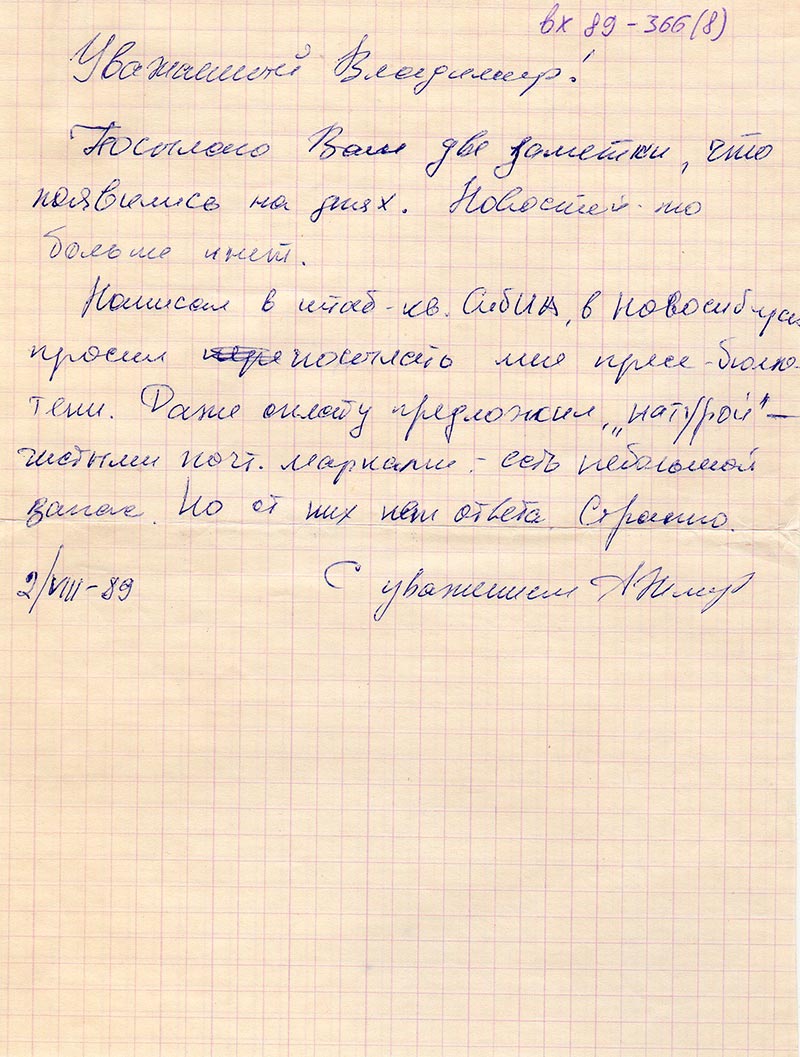 вх 89-366(8)
Уважаемый Владимир!
Посылаю Вам две заметки, что
появились на днях. Новостей-то
больше и нет.
Написал в штаб-кв. СибИА, в Новосибирск
просил посылать мне пресс-бюлле-
тени. Даже оплату предложил „натурой" —
чистыми почт. марками - есть небольшой
запас. Но от них нет ответа. Странно.
2/VIII-89 С уважением